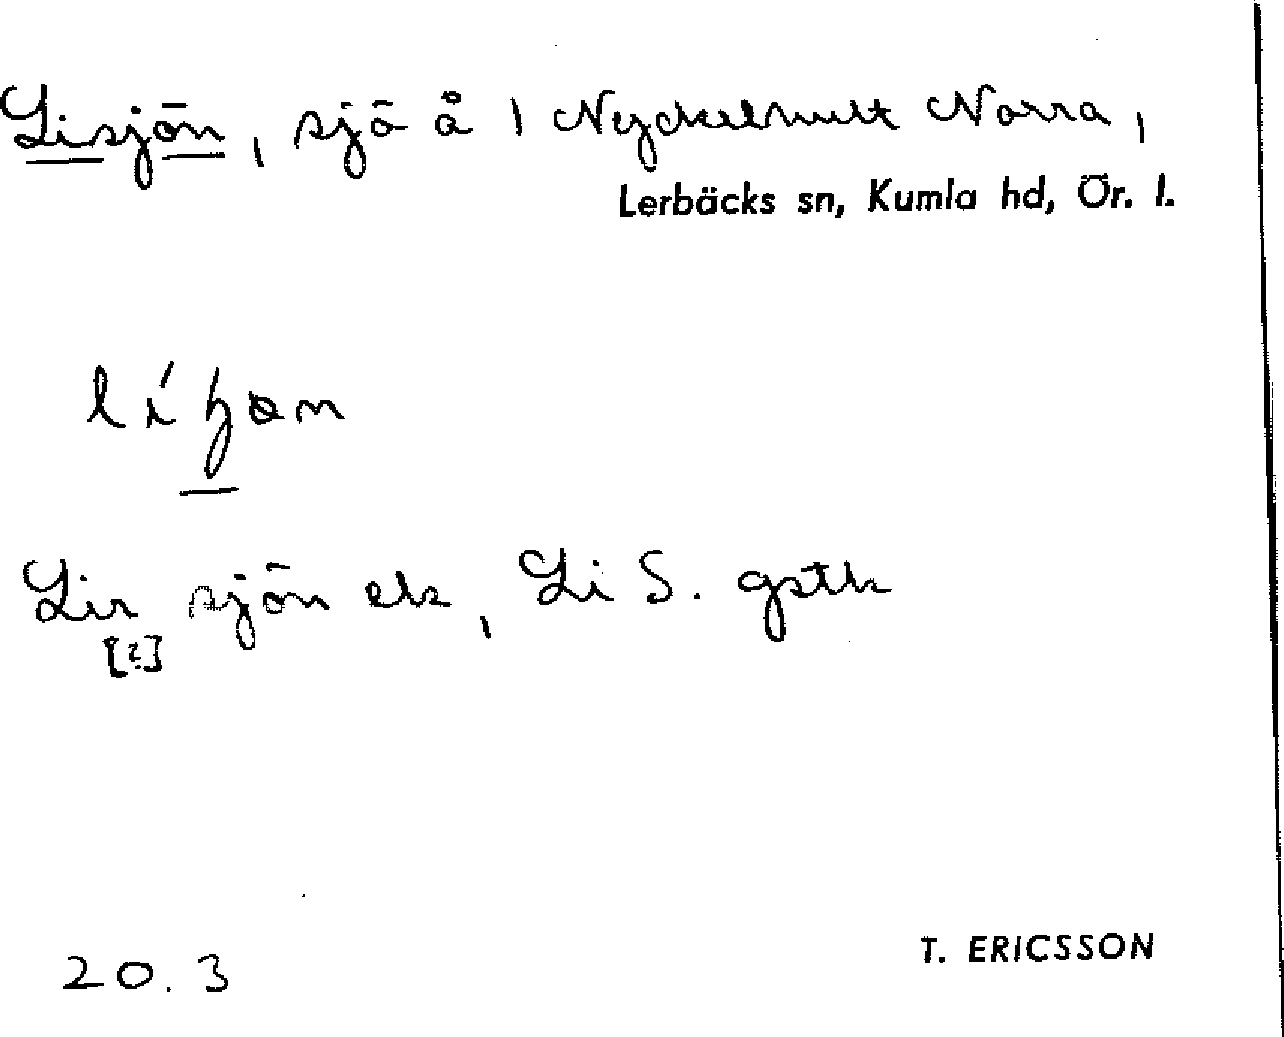 Lisjön, sjö å 1 Nyckelhult Norra,
Lerbäcks sn, Kumla hd, Ör. l.
Lin sjön ek, Li S. gstk
[?]
20.3
T. ERICSSON